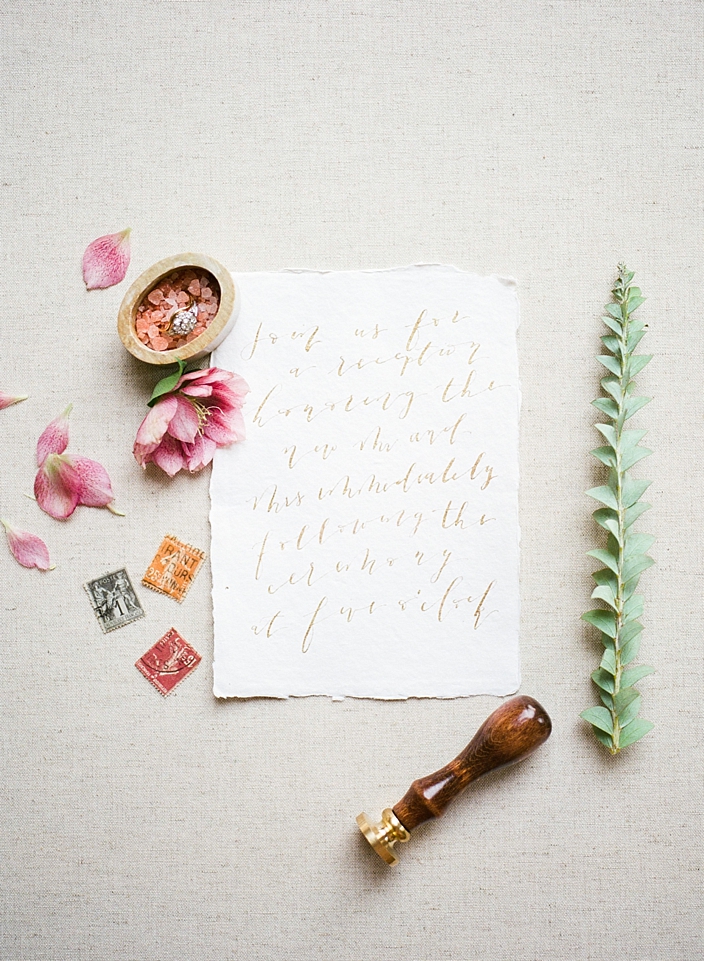 Join us for
a reception
honoring the
new Mr and
Mrs immediately
following the
ceremony
at five o'clock
POSTES
1